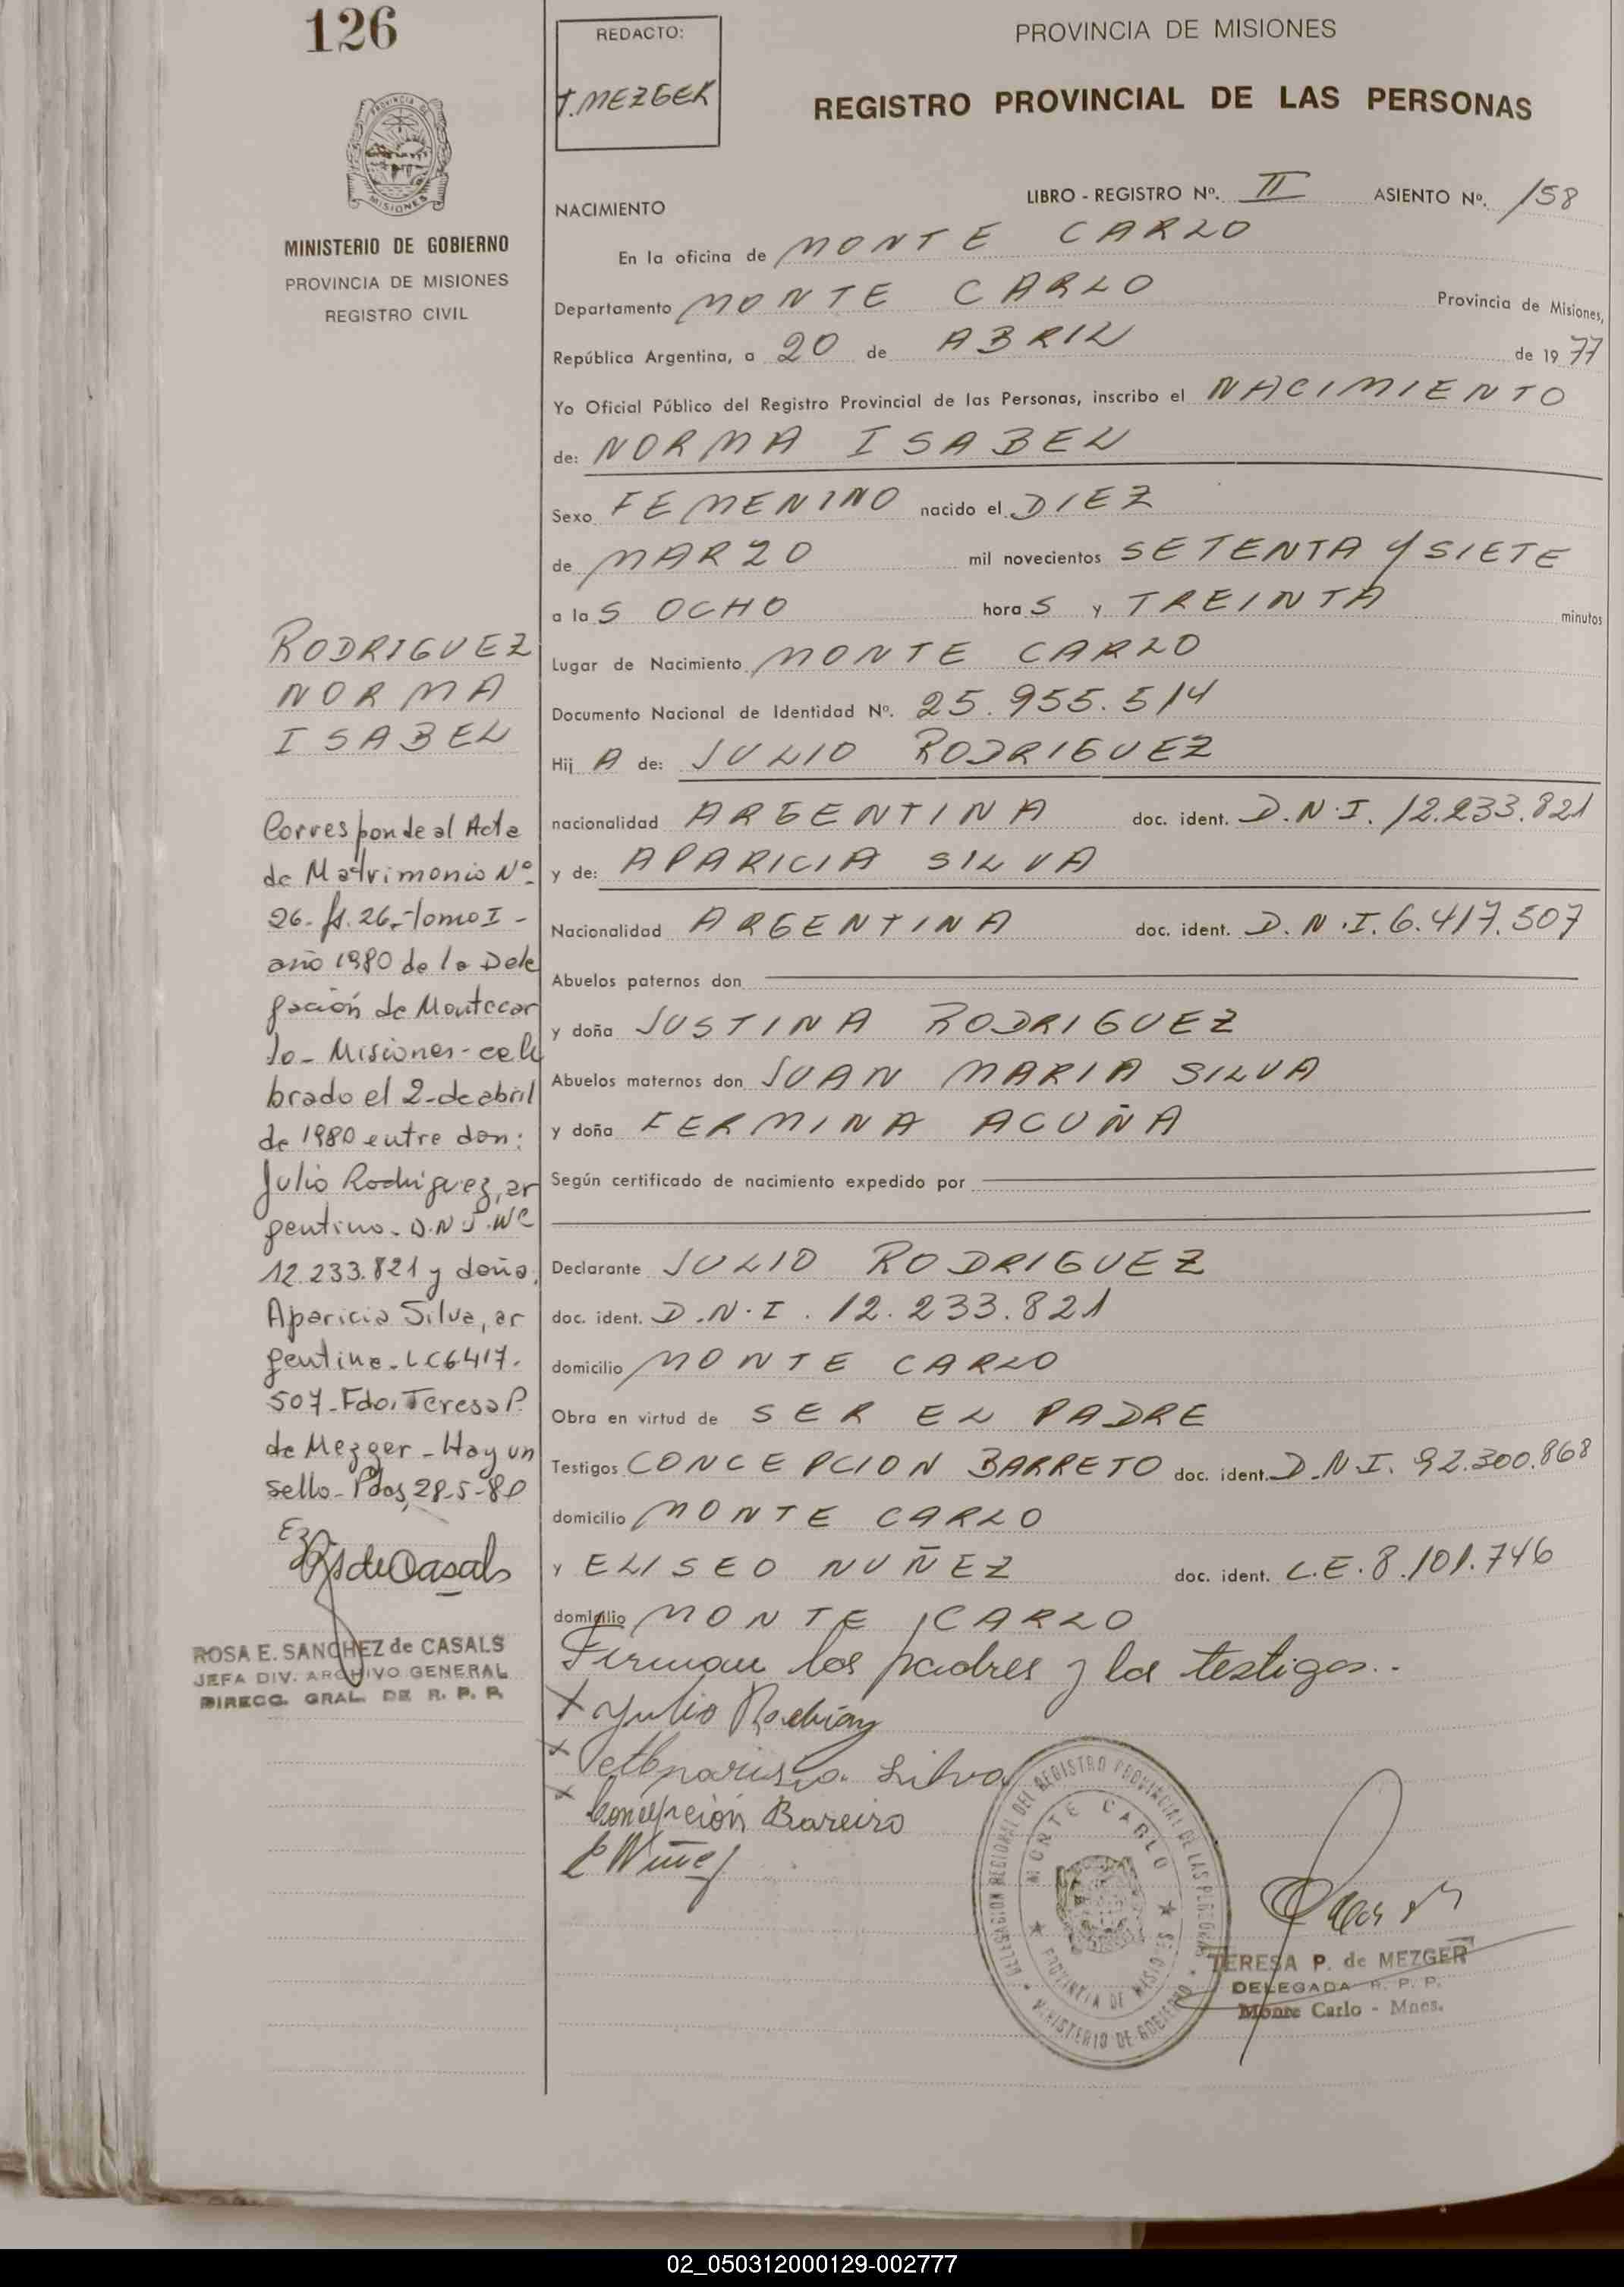 126
REDACTO:
T. MEZGER
PROVINCIA DE MISIONES
REGISTRO PROVINCIAL DE LAS PERSONAS
MISIONES
MINISTERIO DE GOBIERNO
PROVINCIA DE MISIONES
REGISTRO CIVIL
NACIMIENTO
LIBRO - REGISTRO Nº. II ASIENTO Nº. 158
En la oficina de MONTE CARLO
Departamento MONTE CARLO Provincia de Misiones,
República Argentina, a 20 de ABRIL de 1977
Yo Oficial Público del Registro Provincial de las Personas, inscribo el NACIMIENTO
de: NORMA ISABEL
Sexo FEMENINO nacido el DIEZ
de MARZO mil novecientos SETENTA Y SIETE
a las OCHO horas y TREINTA minutos
Lugar de Nacimiento MONTE CARLO
Documento Nacional de Identidad Nº. 25.955.514
Hij A de: JULIO RODRIGUEZ
nacionalidad ARGENTINA doc. ident. D.N.I. 12.233.821
y de: APARICIA SILVA
Nacionalidad ARGENTINA doc. ident. D.N.I. 6.417.507
Abuelos paternos don
y doña JUSTINA RODRIGUEZ
Abuelos maternos don JUAN MARIA SILVA
y doña FERMINA ACUÑA
Según certificado de nacimiento expedido por
Declarante JULIO RODRIGUEZ
doc. ident. D.N.I. 12.233.821
domicilio MONTE CARLO
Obra en virtud de SER EL PADRE
Testigos CONCEPCION BARRETO doc. ident. D.N.I. 92.300.868
domicilio MONTE CARLO
y ELISEO NUÑEZ doc. ident. L.E. 8.101.746
domicilio MONTE CARLO
Firman los padres y los testigos.-
RODRIGUEZ
NORMA
ISABEL
Corresponde al Acta
de Matrimonio Nº
26- fs. 26- Tomo I -
año 1980 de la Dele
gación de Montecar
lo - Misiones - cele
brado el 2 de abril
de 1980 entre don:
Julio Rodriguez, ar
gentino - D.N.I. Nº
12.233.821 y doña
Aparicia Silva, ar
gentina - LC 6417.
507 - Fdo. Teresa P.
de Mezger - Hay un
sello - Pdas, 28-5-80
ROSA E. SANCHEZ de CASALS
JEFA DIV. ARCHIVO GENERAL
DIRECC. GRAL. DE R. P. P.
x Julio
x Silva
x Concepción Bareiro
DELEGACION REGIONAL DEL REGISTRO PROVINCIAL DE LAS PERSONAS
MONTE CARLO
PROVINCIA DE MISIONES
MINISTERIO DE GOBIERNO
TERESA P. de MEZGER
DELEGADA R. P. P.
Monte Carlo - Mnes.
02_050312000129-002777